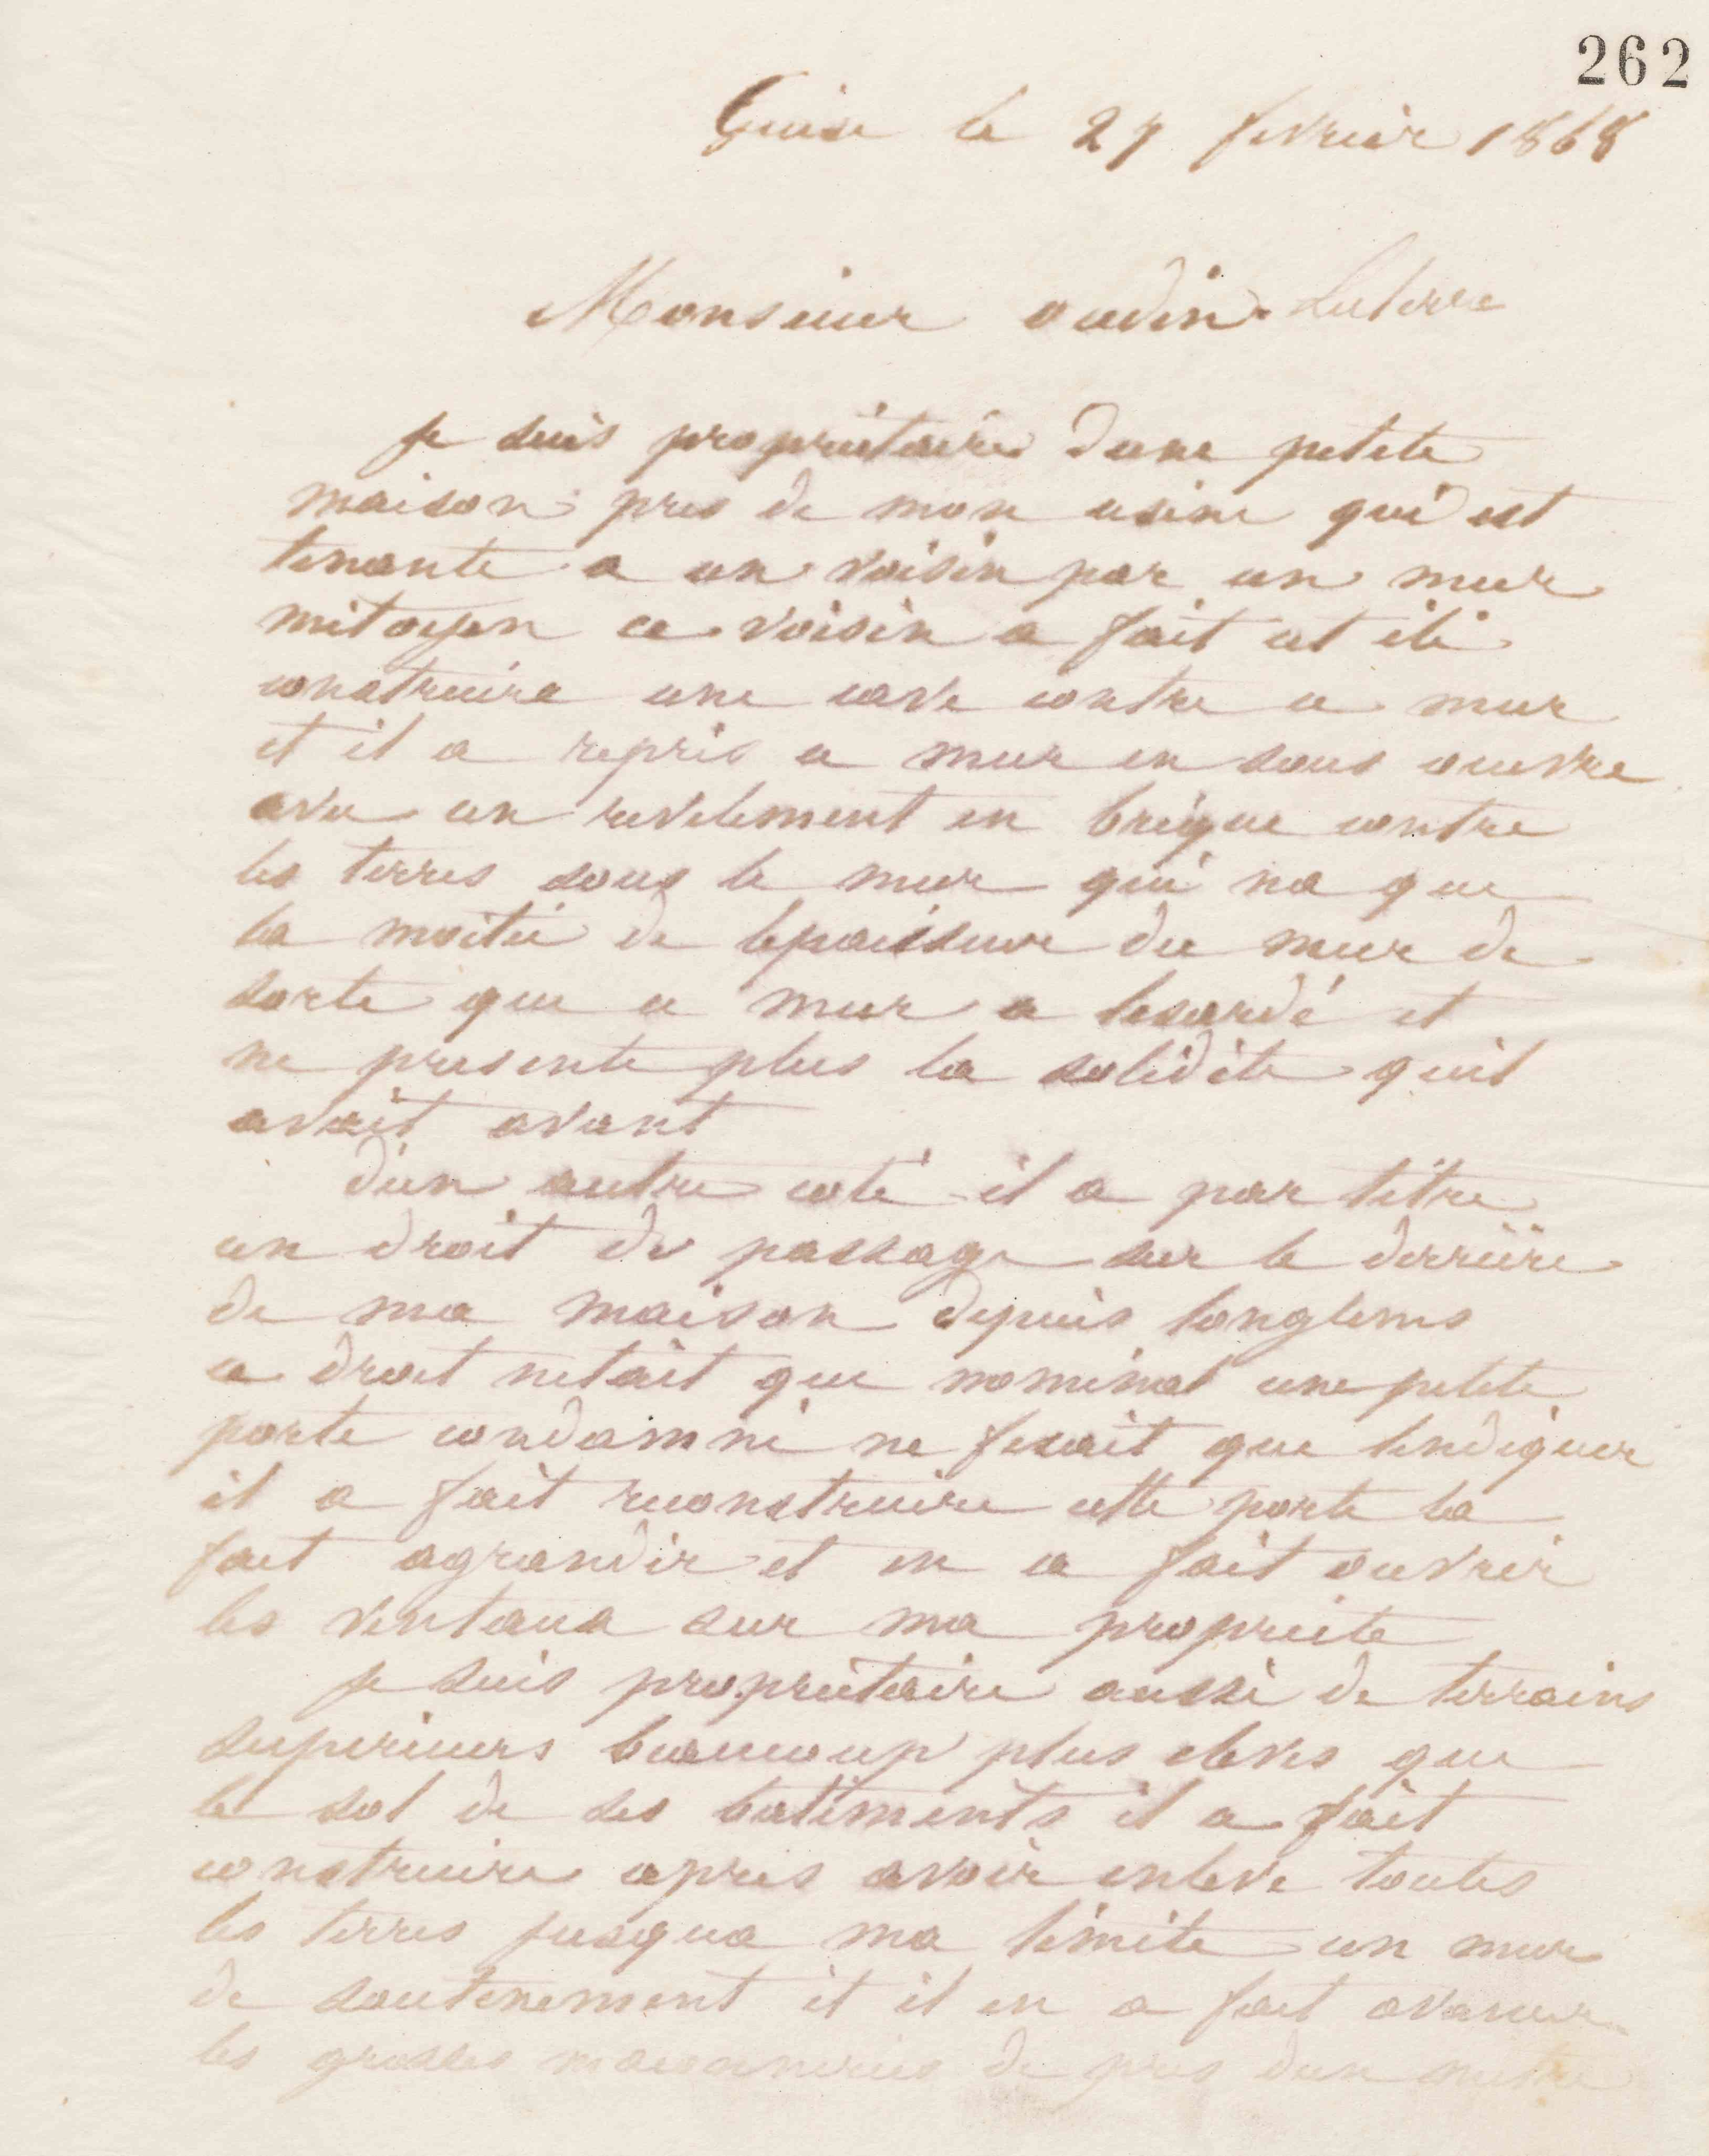 262
Guise le 27 fevrier 1868
Monsieur oudin-Leclerre
je suis proprietaire dune petite
maison pres de mon usine qui est
tenante a un voisin par un mur
mitoyen ce voisin a fait cet été
construire une cave contre ce mur
et il a repris ce mur en sous oeuvre
avec un revetement en brique contre
les terres sous le mur qui na que
la moitié de lepaisseur du mur de
sorte que ce mur a lesardé et
ne presente plus la solidite quil
avait avant
d'un autre coté il a par titre
un droit de passage sur le derrière
de ma maison depuis longtems
ce droit netait que nominal une petite
porte condamné ne fesait que lindiquer
il a fait reconstruire cette porte la
fait agrandir et en a fait ouvrir
les ventaux sur ma propriete
je suis proprietaire aussi de terrains
superieurs beaucoup plus eleves que
le sol de ses batiments il a fait
construire apres avoir enleve toutes
les terres jusqua ma limite un mur
de soutenement et il en a fait avancer
les grosses maconneries de pres dun metre